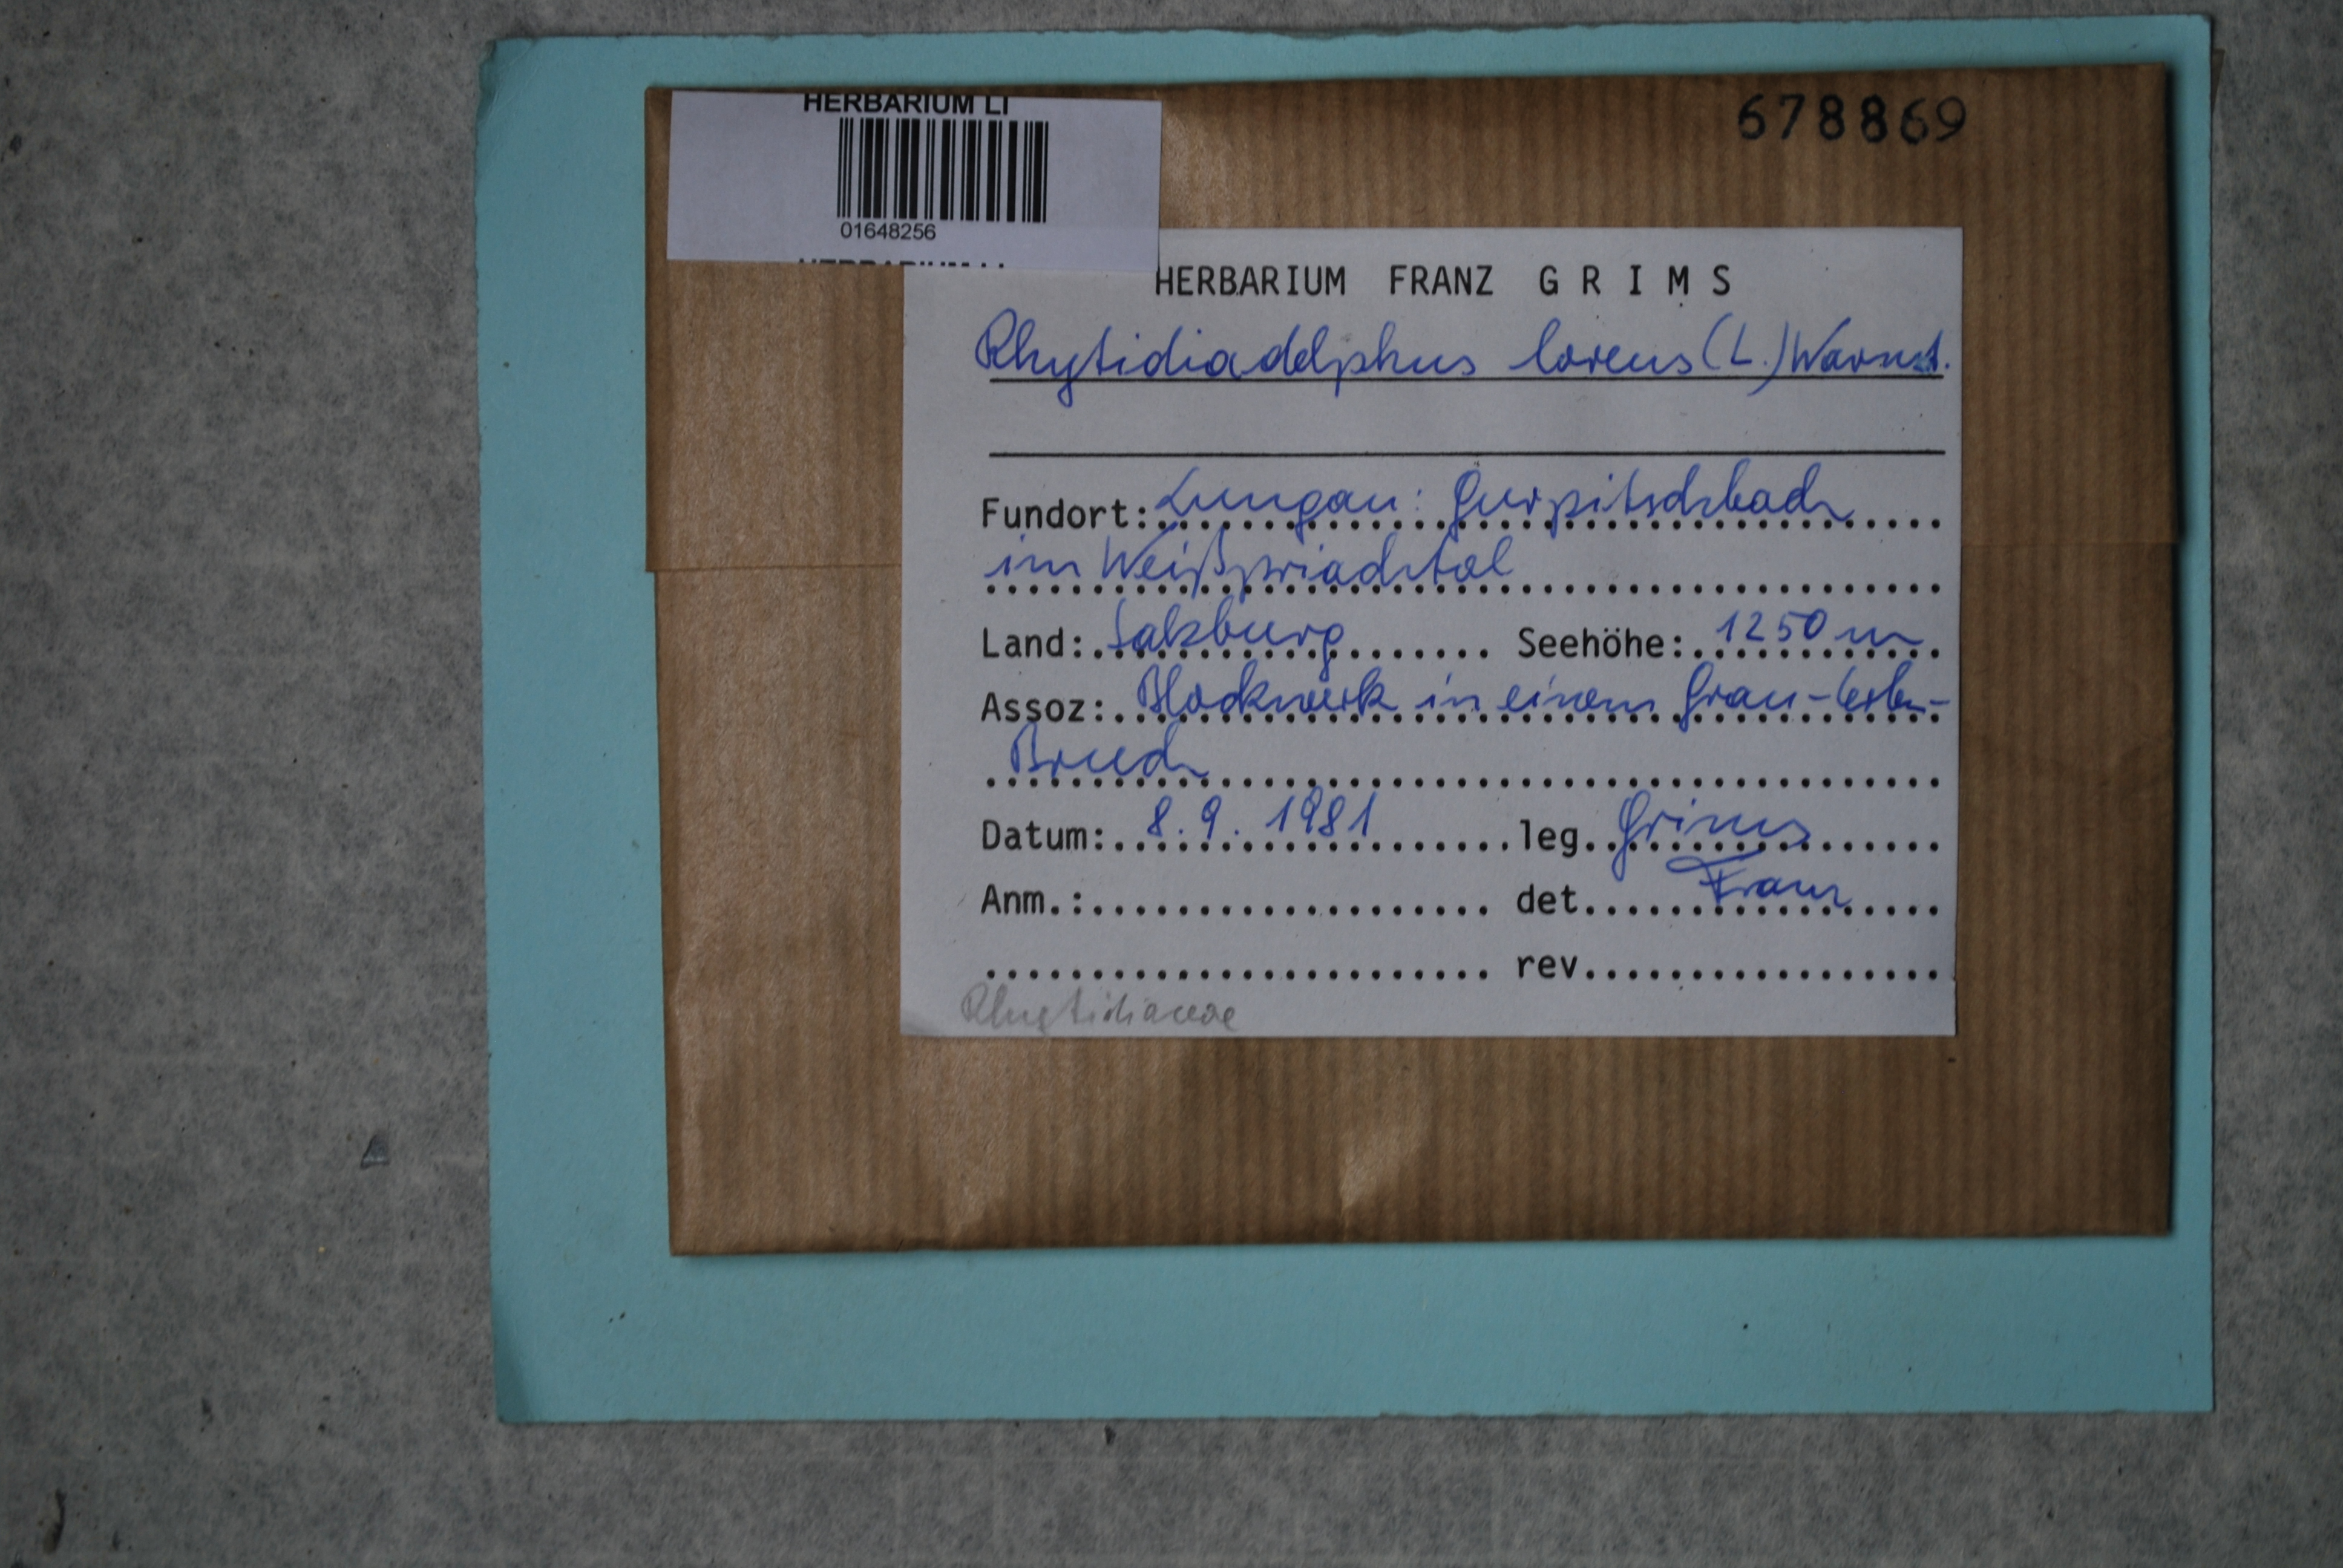 HERBARIUM LI
678869
01648256
HERBARIUM LI
HERBARIUM FRANZ GRIMS
Rhytidiadelphus loreus (L.) Warnst.
Fundort: Lungau: Gurpitschbach
im Weißpriachtal
Land: Salzburg Seehöhe: 1250 m
Assoz: Blockwerk in einem Grau-Erlen-
Bruch
Datum: 8.9.1981 leg. Grims
Anm.: det. Franz
rev.
Rhytidiaceae